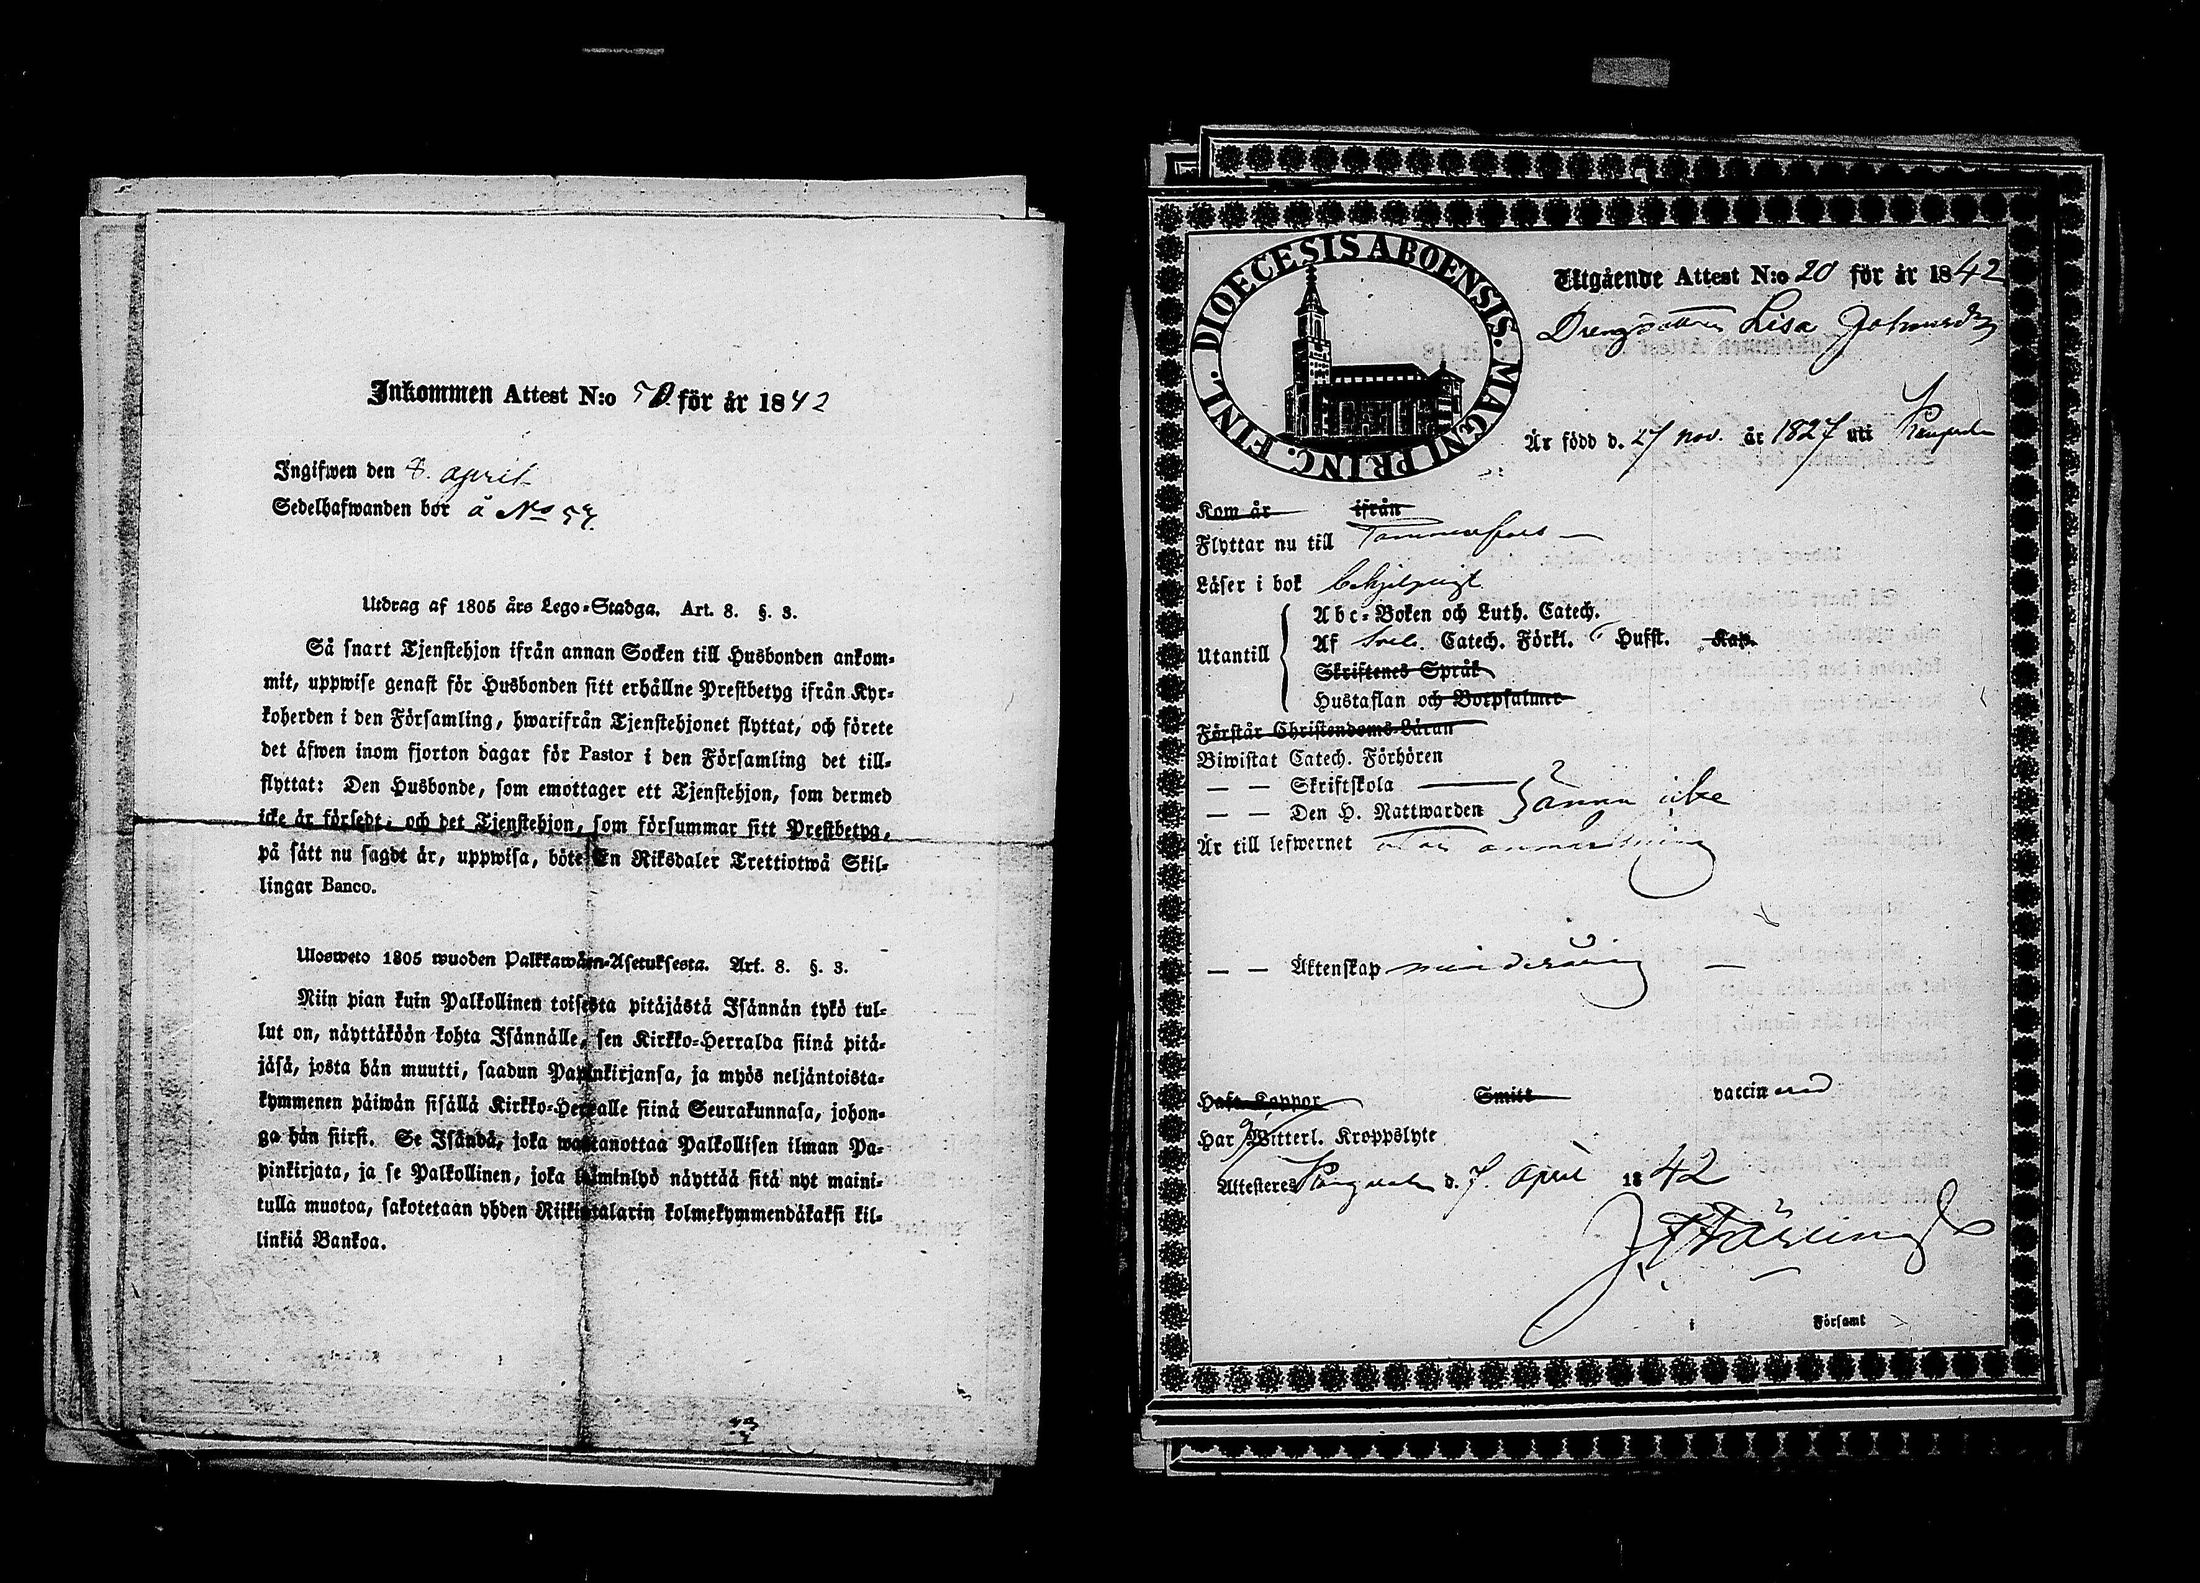 Inkommen Attest N:o 50 för år 1842
Ingifwen den 8. april
Sedelhafwanden bor å No 57.
Utdrag af 1805 års Lego-Stadga. Art. 8. §. 3.
Så snart Tjenstehjon ifrån annan Socken till Husbonden ankom-
mit, uppwise genast för Husbonden sitt erhållne Prestbetyg ifrån Kyr-
koherden i den Församling, hwarifrån Tjenstehjonet flyttat, och förete
det äfwen inom fjorton dagar för Pastor i den Församling det till-
flyttat: Den Husbonde, som emottager ett Tjenstehjon, som dermed
icke är försedt, och det Tjenstehjon, som försummar sitt Prestbetyg,
på sätt nu sagdt är, uppwisa, böte En Riksdaler Trettiotwå Skil-
lingar Banco.
Ulosweto 1805 wuoden Palkkawäen-Asetuksesta. Art. 8. §. 3.
Niin pian kuin Palkollinen toisesta pitäjästä Isännän tykö tul-
lut on, näyttäköön kohta Isännälle, sen Kirkko-Herralda siinä pitä-
jäsä, josta hän muutti, saadun Papinkirjansa, ja myös neljäntoista-
kymmenen päiwän sisällä Kirkko-Herralle siinä Seurakunnasa, johon-
ga hän siirsi. Se Isändä, joka wastanottaa Palkollisen ilman Pa-
pinkirjata, ja se Palkollinen, joka laiminlyö näyttää sitä nyt maini-
tulla muotoa, sakotetaan yhden Riikintalarin kolmekymmendäkaksi kil-
linkiä Bankoa.
DIOECESIS ABOENSIS. MAGNI PRINC. FINL.
Utgående Attest N:o 20 för år 1842
Lisa
Är född d. 27 nov. år 1827 uti
Kom år ifrån
Flyttar nu till Tammerfors
Läser i bok behjelpligt
Abc-Boken och Luth. Catech.
Utantill Af Sveb. Catech. Förkl. Hufst. Kap.
Skriftenes Språk
Hustaflan och Botpsalmer
Förstår Christendoms-Läran
Biwistat Catech. Förhören
— — Skriftskola
— — Den H. Nattwarden ännu icke
Är till lefwernet utan anmärkning
— — Äktenskap minderårig —
Haft Koppor Smitt vaccinerad
Har Witterl. Kroppslyte
Attesteres d. 7. april 1842
i Församl